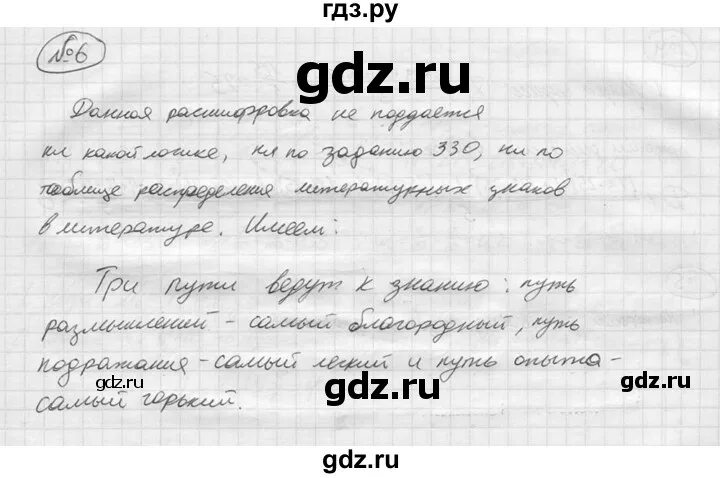 гдз.ру
№6
gdz.ru
Данная расшифровка не поддается
ни какой логике, ни по заданию 330, ни по
таблице распределения литературных знаков
в литературе. Имеем:
Три пути ведут к знанию: путь
размышлений - самый благородный, путь
подражания - самый легкий и путь опыта -
самый горький.
gdz.ru
gdz.ru
gdz.ru
gdz.ru